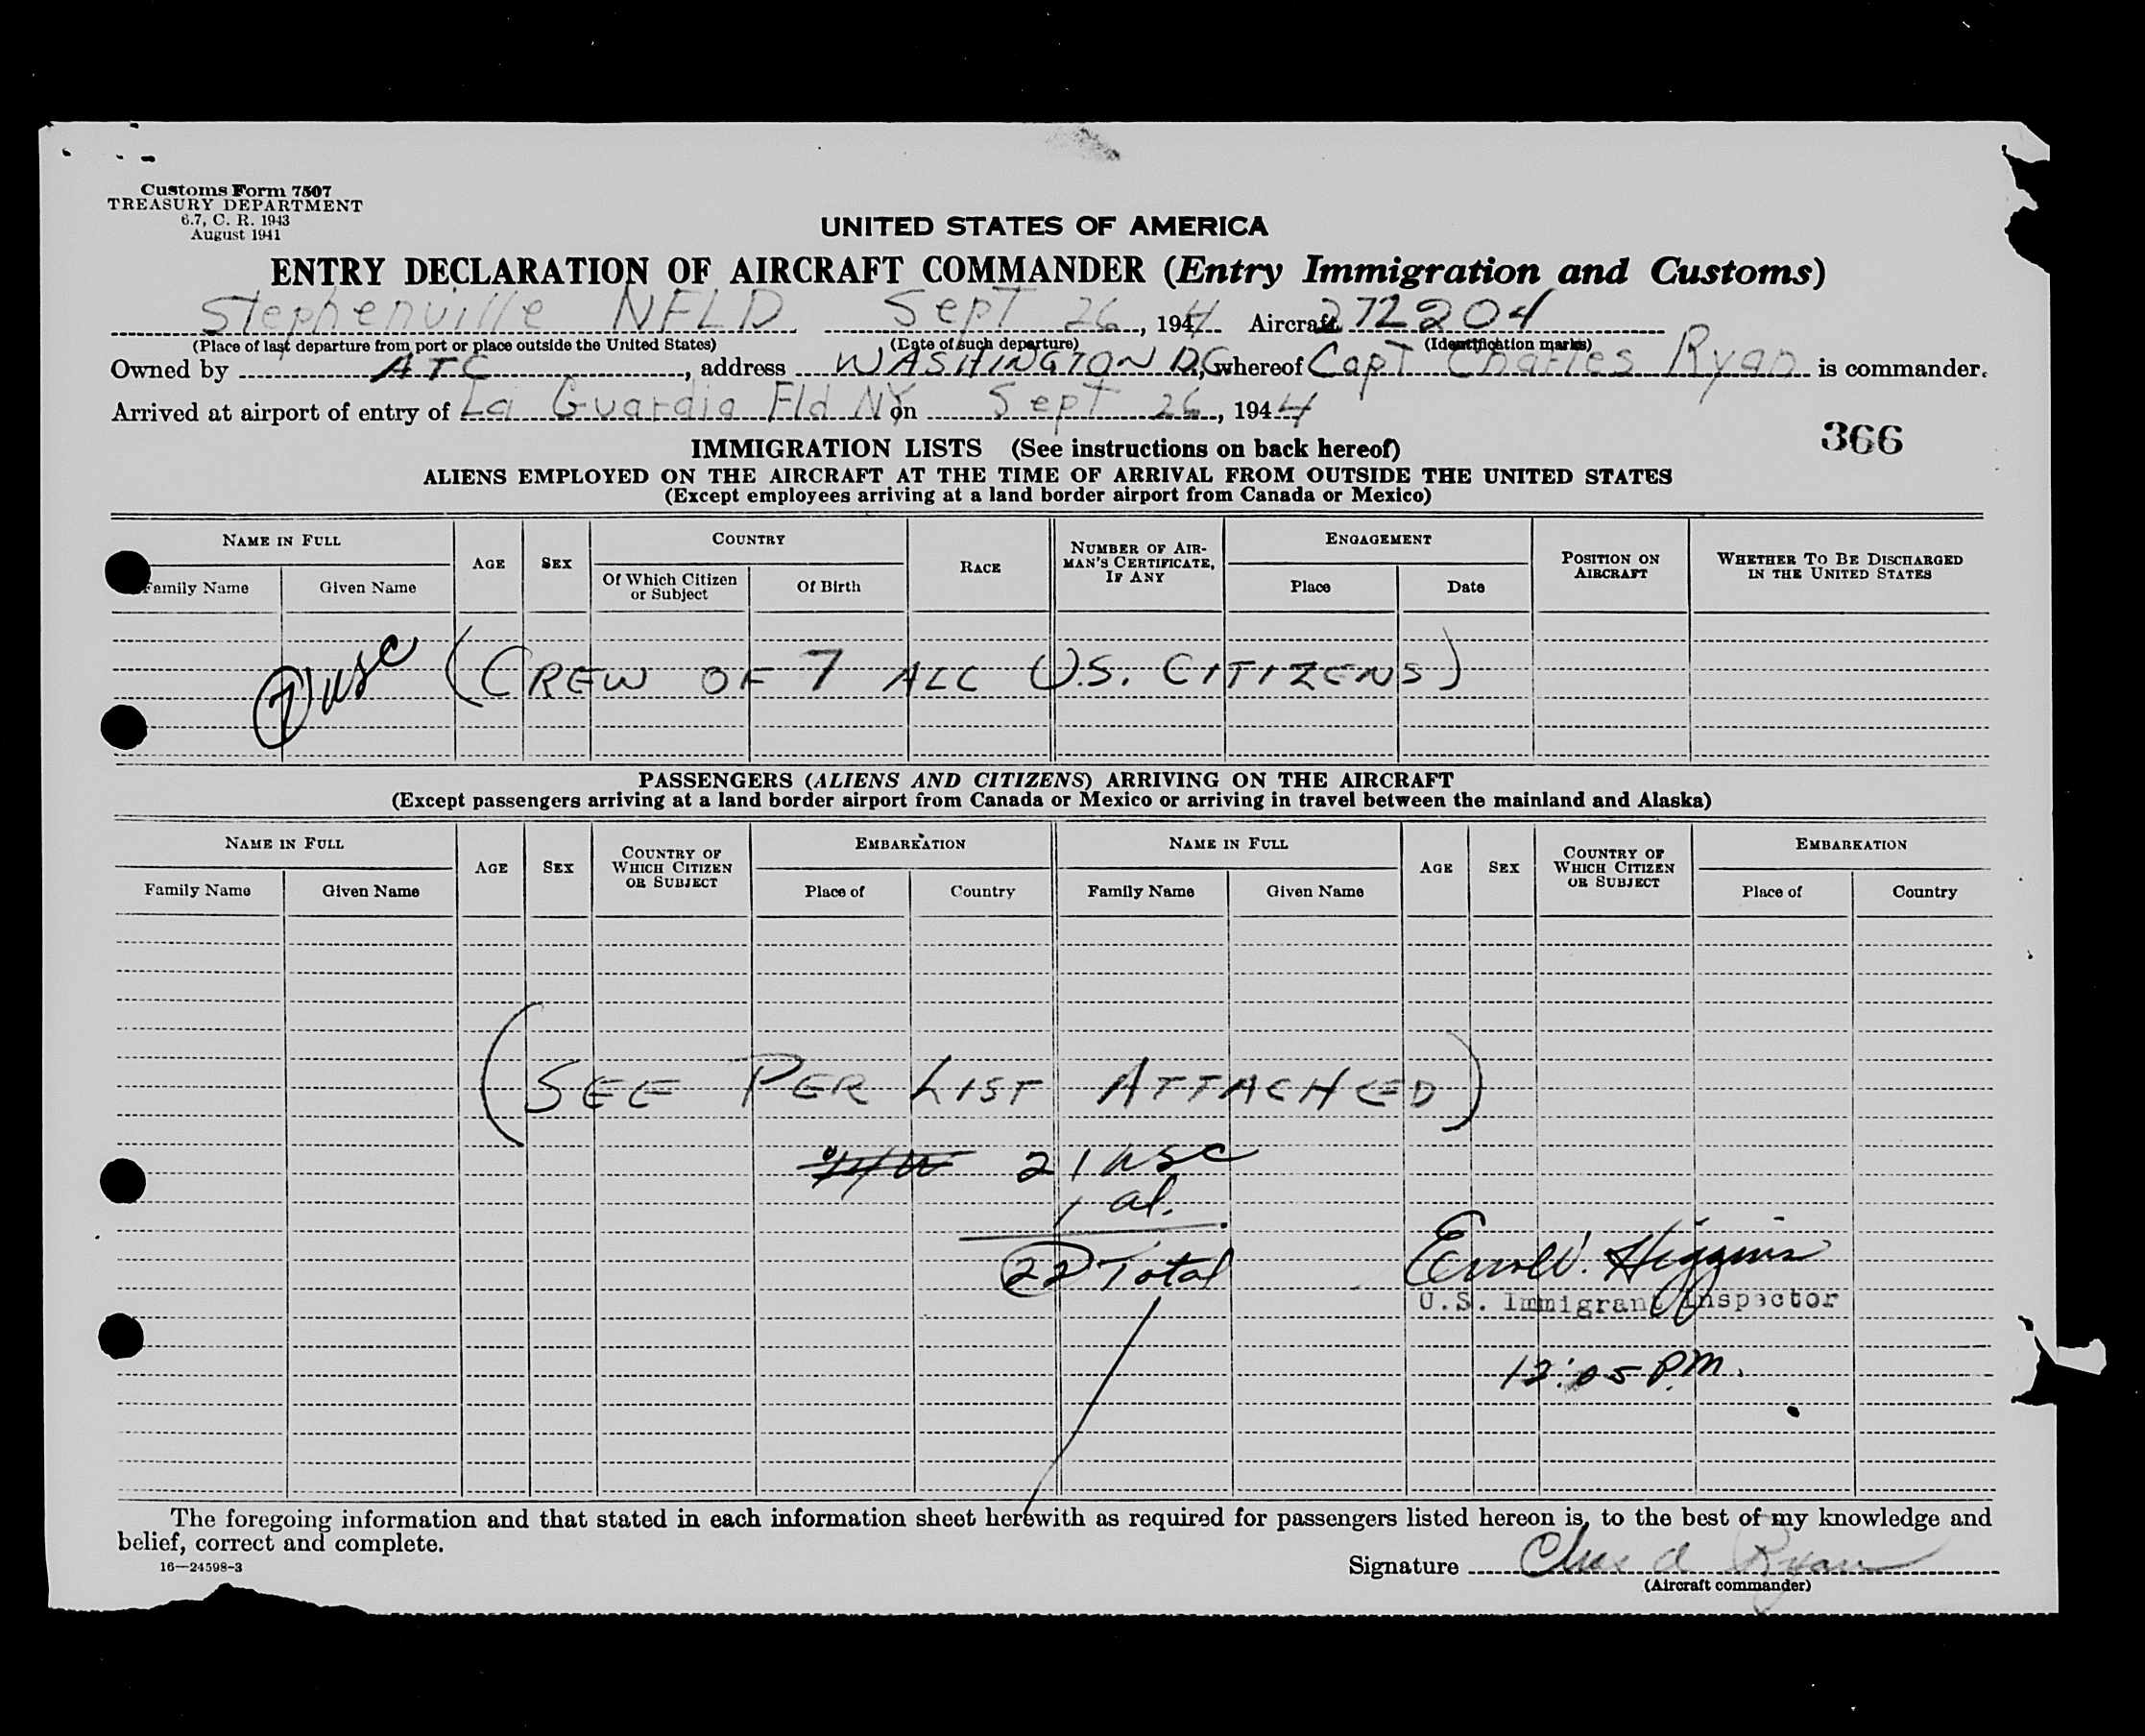 Customs Form 7507
TREASURY DEPARTMENT
6.7, C. R. 1943
August 1941
UNITED STATES OF AMERICA
ENTRY DECLARATION OF AIRCRAFT COMMANDER (Entry Immigration and Customs)
Stephenville NFLD Sept 26, 1944 Aircraft 272204
(Place of last departure from port or place outside the United States) (Date of such departure) (Identification marks)
Owned by ATC, address WASHINGTON D.C, whereof Capt Charles Ryan is commander.
Arrived at airport of entry of La Guardia Fld NY on Sept 26, 1944
366
IMMIGRATION LISTS (See instructions on back hereof)
ALIENS EMPLOYED ON THE AIRCRAFT AT THE TIME OF ARRIVAL FROM OUTSIDE THE UNITED STATES
(Except employees arriving at a land border airport from Canada or Mexico)
NAME IN FULL AGE SEX COUNTRY RACE NUMBER OF AIRMAN'S CERTIFICATE, IF ANY ENGAGEMENT POSITION ON AIRCRAFT WHETHER TO BE DISCHARGED IN THE UNITED STATES
Family Name Given Name Of Which Citizen or Subject Of Birth Place Date
7 usc (CREW OF 7 ALL U.S. CITIZENS)
PASSENGERS (ALIENS AND CITIZENS) ARRIVING ON THE AIRCRAFT
(Except passengers arriving at a land border airport from Canada or Mexico or arriving in travel between the mainland and Alaska)
NAME IN FULL AGE SEX COUNTRY OF WHICH CITIZEN OR SUBJECT EMBARKATION NAME IN FULL AGE SEX COUNTRY OF WHICH CITIZEN OR SUBJECT EMBARKATION
Family Name Given Name Place of Country Family Name Given Name Place of Country
(SEE PER LIST ATTACHED)
21 usc
1 al.
22 Total
Higgins
U.S. Immigrant Inspector
12:05 PM.
The foregoing information and that stated in each information sheet herewith as required for passengers listed hereon is, to the best of my knowledge and
belief, correct and complete.
16—24598-3
Signature Chas A Ryan
(Aircraft commander)